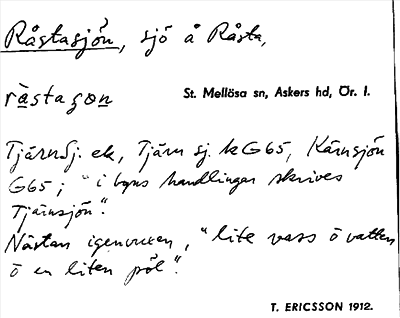 Råstasjön, sjö å Råsta,
råstagon
St. Mellösa sn, Askers hd, Ör. l.
Tjärnsj. ek, Tjärn sj. kG65, Kärnsjön
G65; "i byns handlingar skrives
Tjärnsjön".
Nästan igenvuxen, "lite vass ö vatten
ö en liten pöl".
T. ERICSSON 1912.